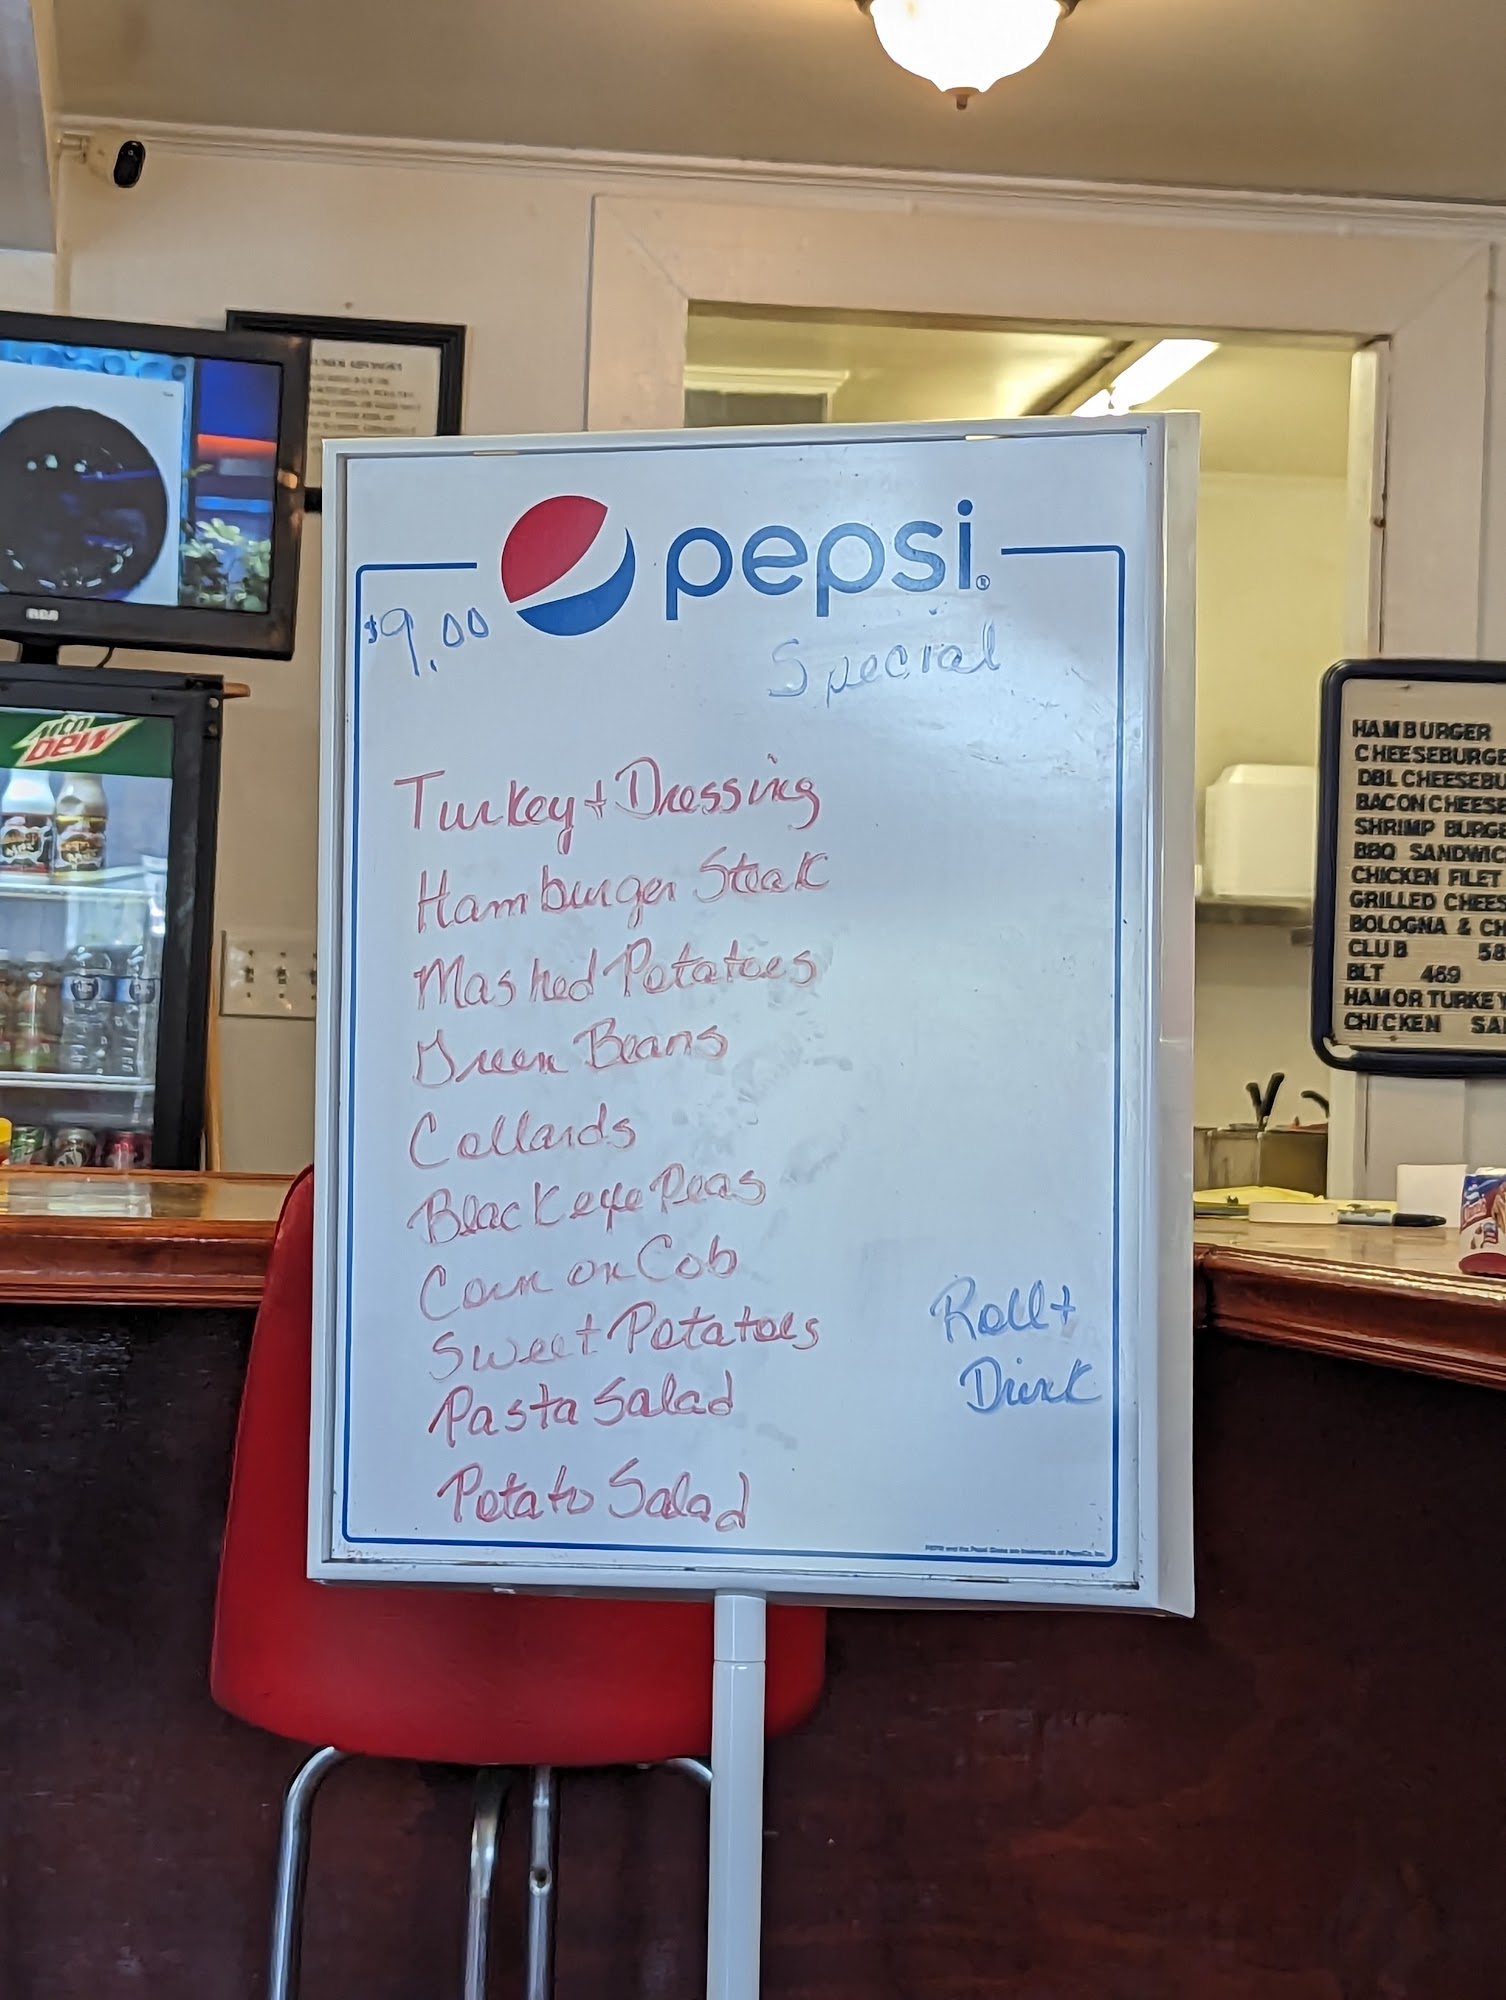 pepsi®
$9.00
Special
Turkey + Dressing
Hamburger Steak
Mashed Potatoes
Green Beans
Collards
Blackeye Peas
Corn on Cob
Sweet Potatoes
Pasta Salad
Potato Salad
Roll +
Drink
RCA
Mtn
Dew
HAMBURGER
CHEESEBURGE
DBL CHEESEBU
BACON CHEESE
SHRIMP BURGE
BBQ SANDWIC
CHICKEN FILET
GRILLED CHEES
BOLOGNA & CH
CLUB 58
BLT 469
HAM OR TURKEY
CHICKEN SA